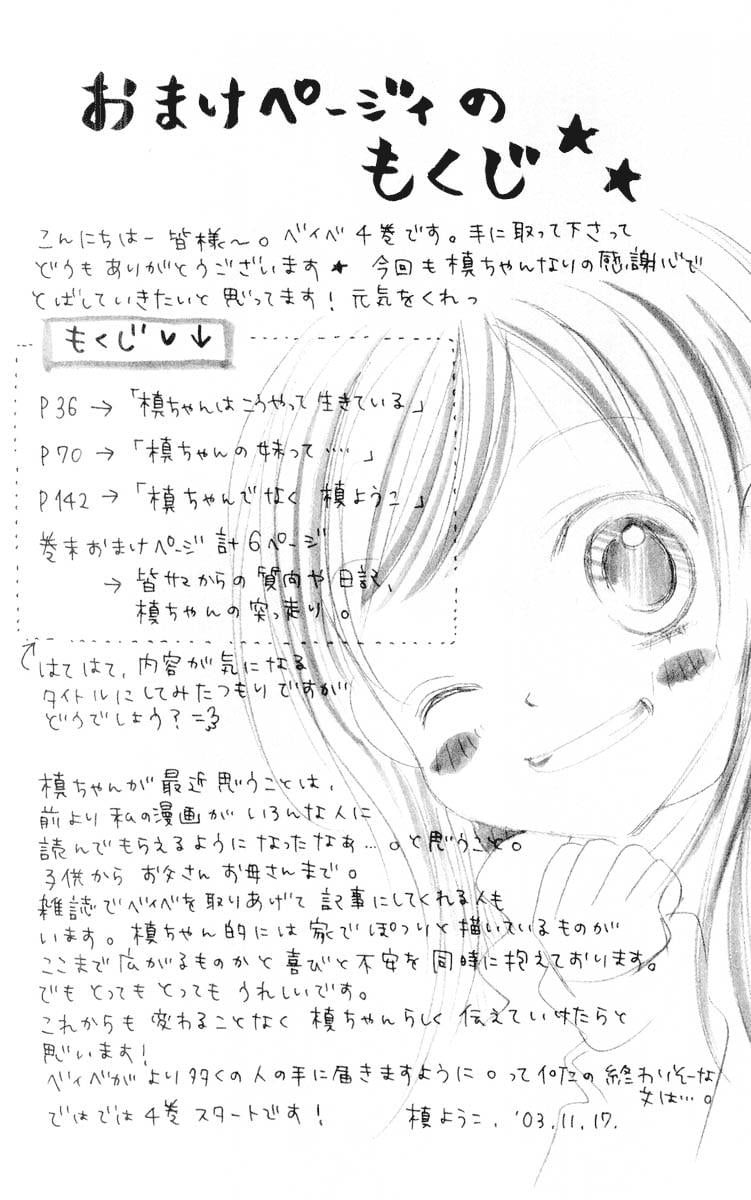 おまけページィの
もくじ★★
こんにちはー皆様〜。ベイベ4巻です。手に取って下さって
どうもありがとうございます★ 今回も槙ちゃんなりの感謝心で
とばしていきたいと思ってます！元気をくれっ
もくじ♥↓
P36→「槙ちゃんはこうやって生きている」
P70→「槙ちゃんの妹って……」
P142→「槙ちゃんでなく 槙ようこ」
巻末おまけページ 計6ページ
→ 皆サマからの質問や日記、
槙ちゃんの突っ走り。
はてはて、内容が気になる
タイトルにしてみたつもりですが
どうでしょう？
槙ちゃんが最近思うことは、
前より私の漫画がいろんな人に
読んでもらえるようになったなぁ…。と思うこと。
子供からお父さんお母さんまで。
雑誌でベイベを取りあげて記事にしてくれる人も
います。槙ちゃん的には家でぽつりと描いているものが
ここまで広がるものかと喜びと不安を同時に抱えております。
でもとってもとってもうれしいです。
これからも変わることなく槙ちゃんらしく伝えていけたらと
思います！
ベイベがより多くの人の手に届きますように。って何だこの終わりそーな
文は…。
ではでは4巻スタートです！ 槙ようこ、'03.11.17.